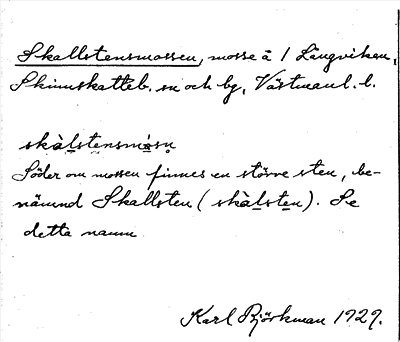 Skallstensmossen, mosse å 1 Långviken,
Skinnskatteb. sn och bg, Västmanl. l.
skàlstensmåsn
Söder om mossen finnes en större sten, be-
nämnd Skallsten (skàlsten). Se
detta namn
Karl Björkman 1929.